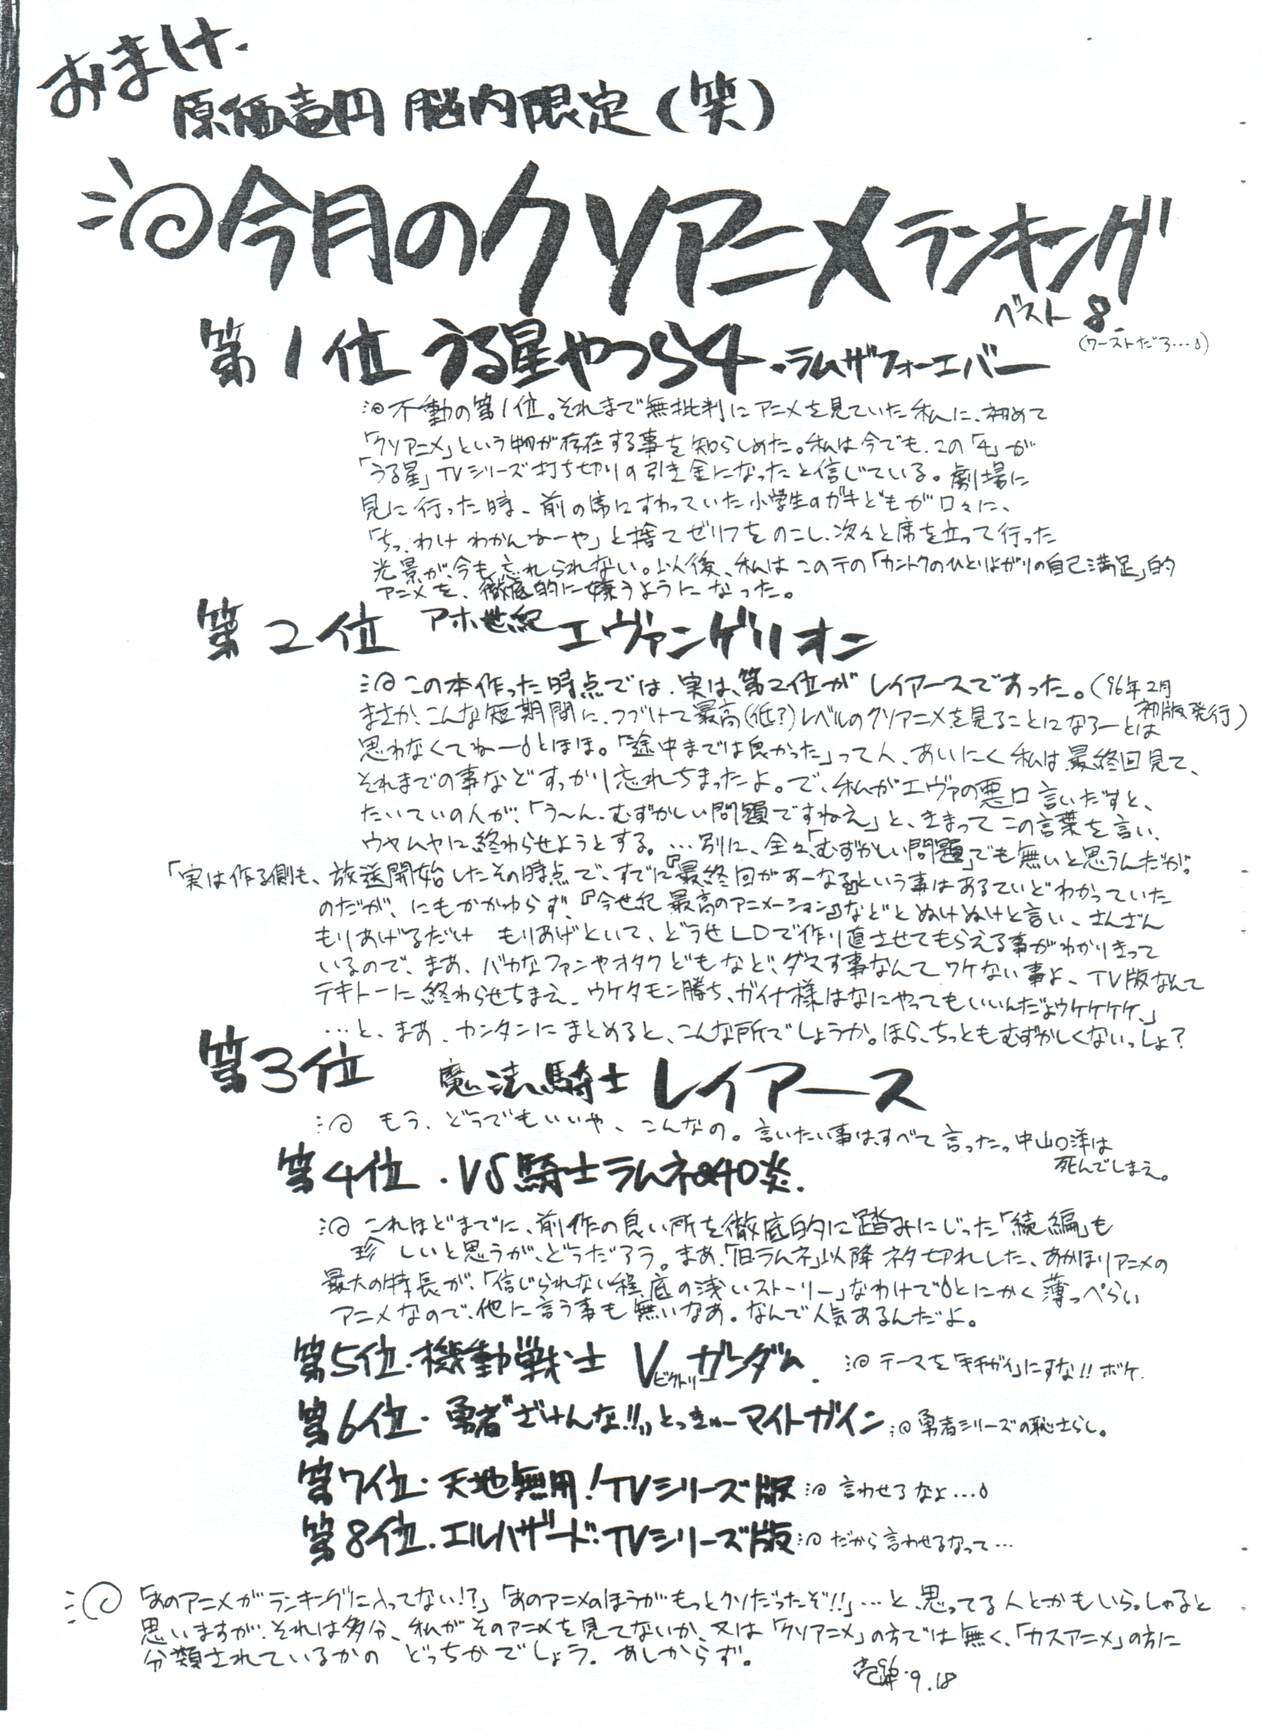 おまけ.
原価壱円 脳内限定(笑)
今月のクソアニメランキング
ベスト8.
(ワーストだろ…)
第1位 うる星やつら4・ラムザフォーエバー
不動の第1位。それまで無批判にアニメを見ていた私に、初めて
「クソアニメ」という物が存在する事を知らしめた。私は今でも、この「4」が
「うる星」TVシリーズ打ち切りの引き金になったと信じている。劇場に
見に行った時、前の席にすわっていた小学生のガキどもが口々に、
「ちっ、わけわかんねーや」と捨てゼリフをのこし、次々と席を立って行った
光景が、今も忘れられない。以後、私はこのテの「カントクのひとりよがりの自己満足」的
アニメを、徹底的に嫌うようになった。
第2位 アホ世紀エヴァンゲリオン
この本作った時点では、実は、第2位がレイアースであった。(96年2月
初版発行)
まさか、こんな短期間に、つづけて最高(低?)レベルのクソアニメを見ることになろーとは
思わなくてねーとほほ。「途中までは良かった」って人、あいにく私は最終回見て、
それまでの事などすっかり忘れちまったよ。で、私がエヴァの悪口言いだすと、
たいていの人が、「う〜ん、むずかしい問題ですねえ」と、きまってこの言葉を言い、
ウヤムヤに終わらせようとする。…別に、全々「むずかしい問題」でも無いと思うんだが。
「実は作る側も、放送開始したその時点で、すでに『最終回があーなる』という事はあるていどわかっていた
のだが、にもかかわらず、『今世紀最高のアニメーション』などとぬけぬけと言い、さんざん
もりあげるだけ もりあげといて、どうせLDで作り直させてもらえる事がわかりきって
いるので、まあ、バカなファンやオタクどもなど、ダマす事なんてワケない事よ、TV版なんて
テキトーに終わらせちまえ、ウケタモン勝ち、ガイナ様はなにやってもいいんだよウケケケケ、」
…と、まあ、カンタンにまとめると、こんな所でしょうか。ほら、ちっともむずかしくないっしょ?
第3位 魔法騎士 レイアース
もう、どうでもいいや、こんなの。言いたい事は、すべて言ったっ中山口洋は
死んでしまえ。
第4位・VS騎士ラムネ&40炎.
これほどまでに、前作の良い所を徹底的に踏みにじった「続編」も
珍しいと思うが、どうだろう。まあ、「旧ラムネ」以降ネタ切れした、あかほりアニメの
最大の特長が、「信じられない程、底の浅いストーリー」なわけでとにかく薄っぺらい
アニメなので、他に言う事も無いなあ。なんで人気あるんだよ。
第5位・機動戦士 Vガンダム.
ビクトリー
テーマを「キチガイ」にすな!! ボケ.
第6位・勇者"ざけんな!!"とっきゅーマイトガイン 勇者シリーズの恥さらし。
第7位・天地無用!TVシリーズ版 言わせるなよ…
第8位・エルハザード・TVシリーズ版 だから言わせるなって…
「あのアニメがランキングに入ってない!?」「あのアニメのほうがもっとクソだったぞ!!」…と、思ってる人とかもいらっしゃると
思いますが、それは多分、私がそのアニメを見てないか、又は「クソアニメ」の方では無く、「カスアニメ」の方に
分類されているかの どっちかでしょう。あしからず。
9.18